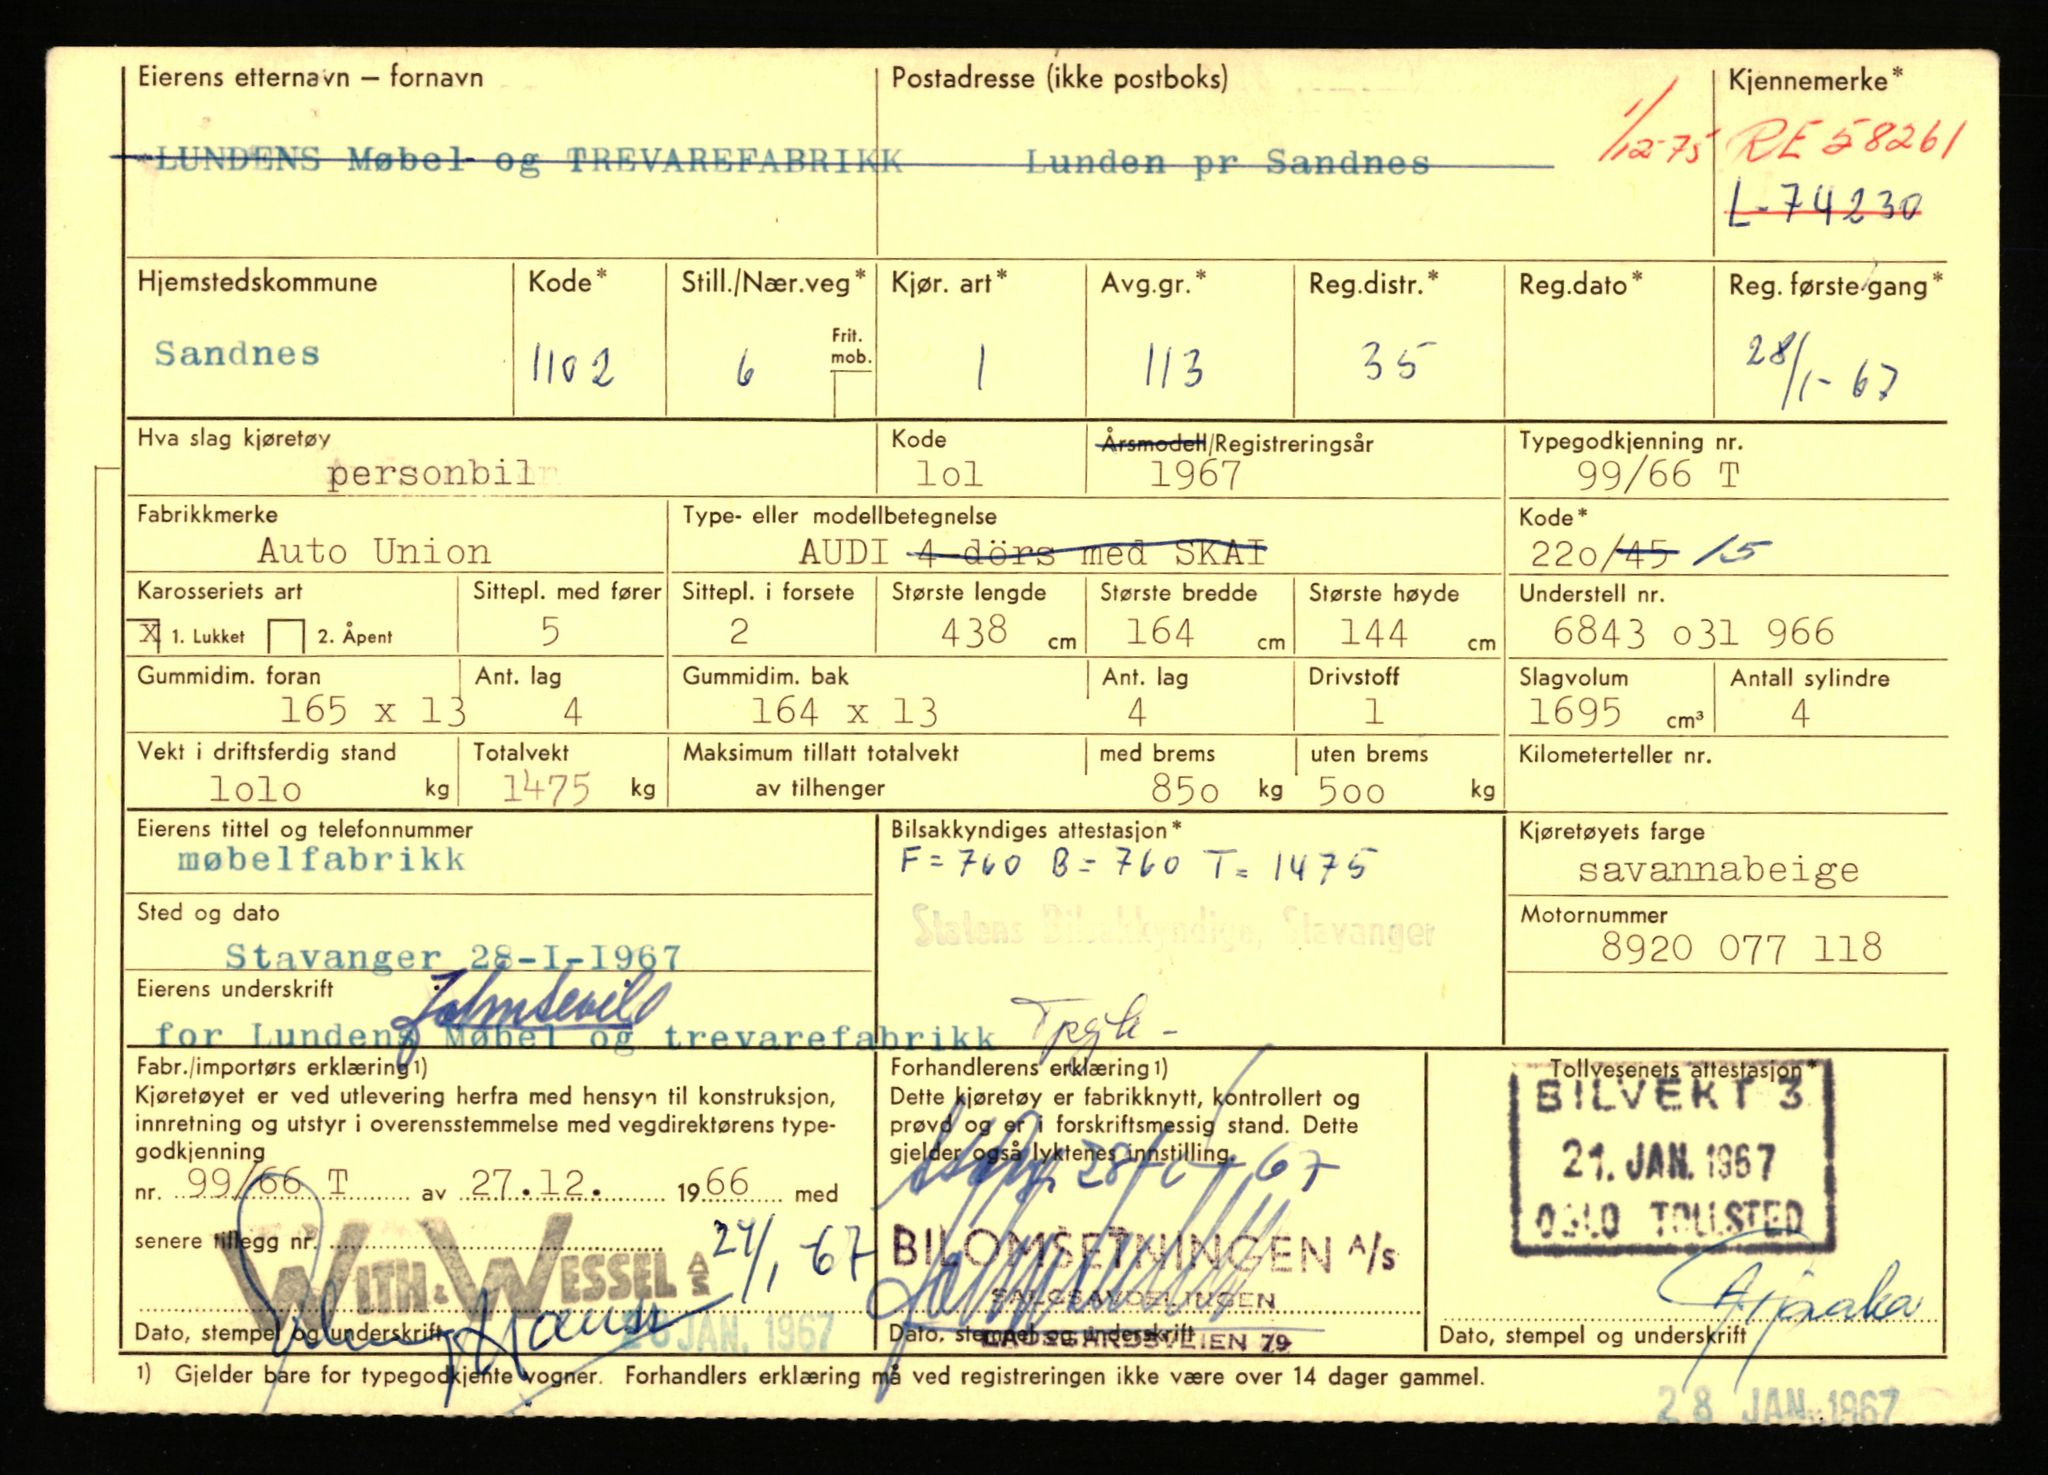 Eierens etternavn – fornavn
Postadresse (ikke postboks)
Kjennemerke*
LUNDENS Møbel- og TREVAREFABRIKK
Lunden pr Sandnes
1/12-75
RE 58261
L-74230
Hjemstedskommune
Kode*
Still./Nær.veg*
Kjør. art*
Avg.gr.*
Reg.distr.*
Reg.dato*
Reg. første gang*
Sandnes
1102
6
Frit. mob.
1
113
35
28/1-67
Hva slag kjøretøy
Kode
Årsmodell/Registreringsår
Typegodkjenning nr.
personbil
lol
1967
99/66 T
Fabrikkmerke
Type- eller modellbetegnelse
Kode*
Auto Union
AUDI 4-dörs med SKAI
220/45 15
Karosseriets art
Sittepl. med fører
Sittepl. i forsete
Største lengde
Største bredde
Største høyde
Understell nr.
X 1. Lukket
2. Åpent
5
2
438 cm
164 cm
144 cm
6843 o31 966
Gummidim. foran
Ant. lag
Gummidim. bak
Ant. lag
Drivstoff
Slagvolum
Antall sylindre
165 x 13
4
164 x 13
4
1
1695 cm³
4
Vekt i driftsferdig stand
Totalvekt
Maksimum tillatt totalvekt
med brems
uten brems
Kilometerteller nr.
lolo kg
1475 kg
av tilhenger
850 kg
500 kg
Eierens tittel og telefonnummer
Bilsakkyndiges attestasjon*
Kjøretøyets farge
møbelfabrikk
F = 760 B = 760 T = 1475
savannabeige
Sted og dato
Statens Bilsakkyndige, Stavanger
Motornummer
Stavanger 28-I-1967
8920 077 118
Eierens underskrift
for Lundens Møbel og trevarefabrikk
Fabr./importørs erklæring 1)
Forhandlerens erklæring 1)
Tollvesenets attestasjon*
Kjøretøyet er ved utlevering herfra med hensyn til konstruksjon,
innretning og utstyr i overensstemmelse med vegdirektørens type-
godkjenning
nr. 99/66 T av 27.12. 1966 med
senere tillegg nr.
24/1-67
WITH & WESSEL A/S
26 JAN. 1967
Dato, stempel og underskrift
Dette kjøretøy er fabrikknytt, kontrollert og
prøvd og er i forskriftsmessig stand. Dette
gjelder også lyktenes innstilling.
28/1-67
BILOMSETNINGEN A/S
SALGSAVDELINGEN
LAGÅRDSVEIEN 79
Dato, stempel og underskrift
BILVEKT 3
21. JAN. 1967
OSLO TOLLSTED
Dato, stempel og underskrift
1) Gjelder bare for typegodkjente vogner. Forhandlers erklæring må ved registreringen ikke være over 14 dager gammel.
28 JAN. 1967